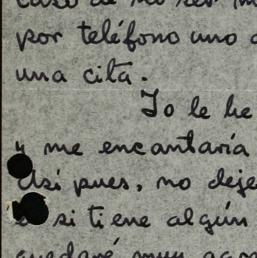 caso de no ser
por teléfono uno
una cita.
Yo le he
y me encantaría
Así pues, no deje
si tiene algún
quedaré muy